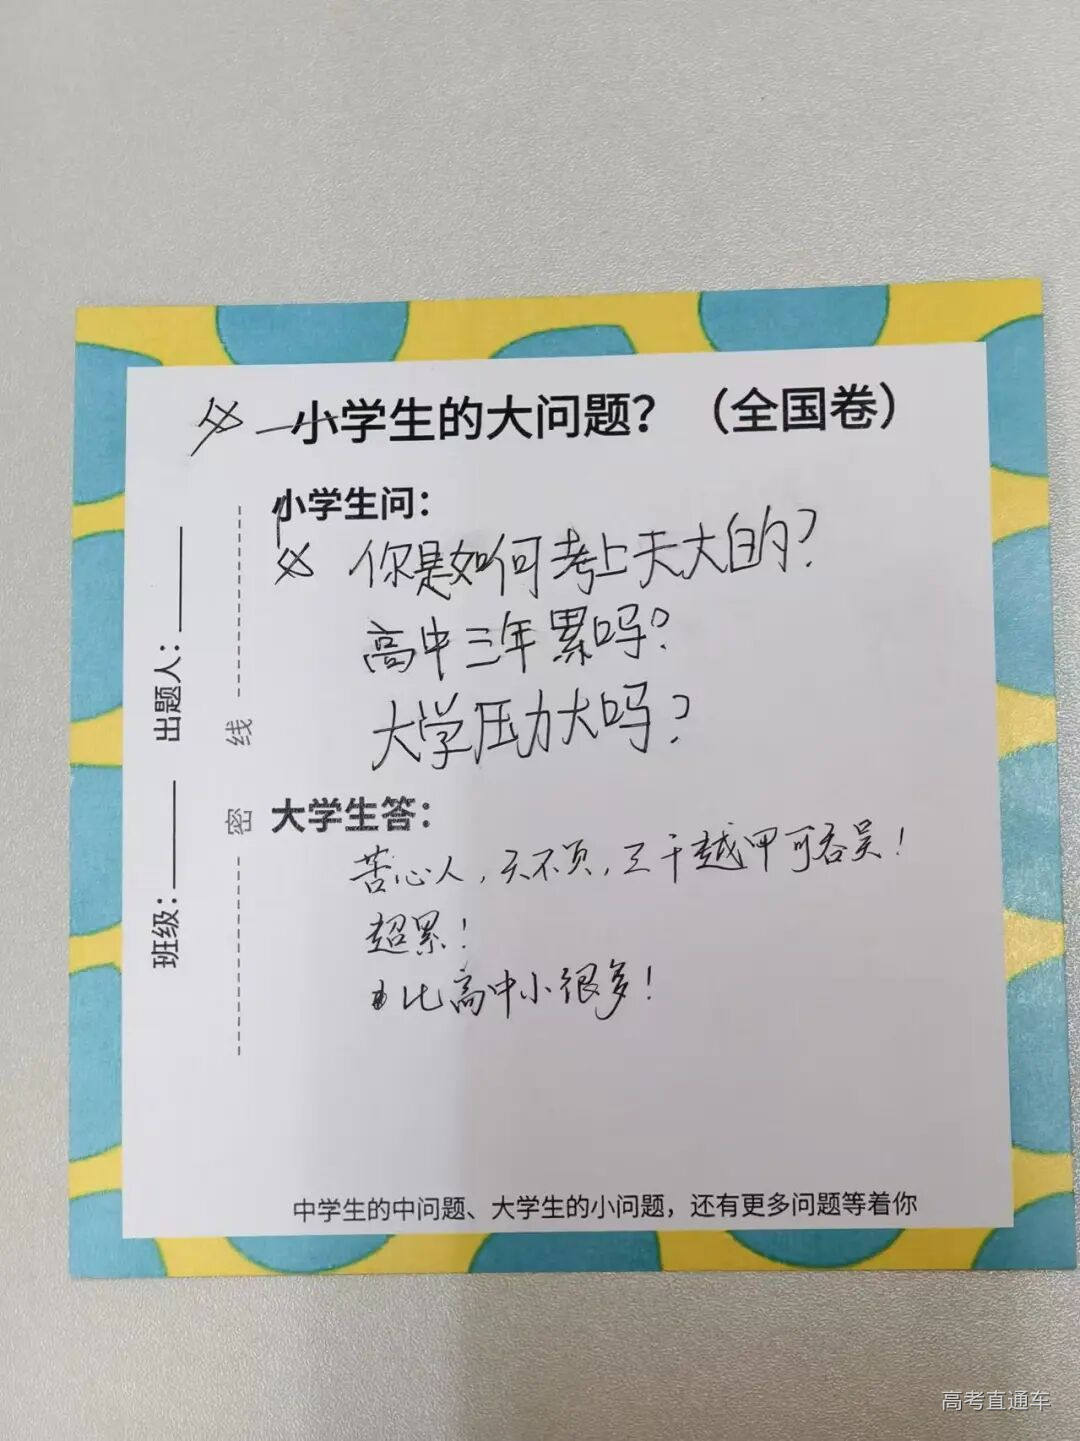 小学生的大问题？（全国卷）
小学生问：
你是如何考上天大的？
高中三年累吗？
大学压力大吗？
大学生答：
苦心人，天不负，三千越甲可吞吴！
超累！
比高中小很多！
中学生的中问题、大学生的小问题，还有更多问题等着你
班级：
出题人：
密 线
高考直通车